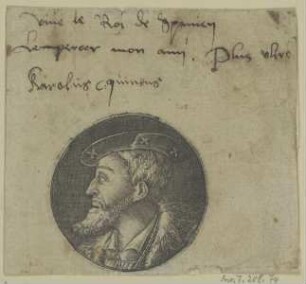 Vive le Roi de Spanien
Lempereer mon ami. Plus vltre
Karolus quintus